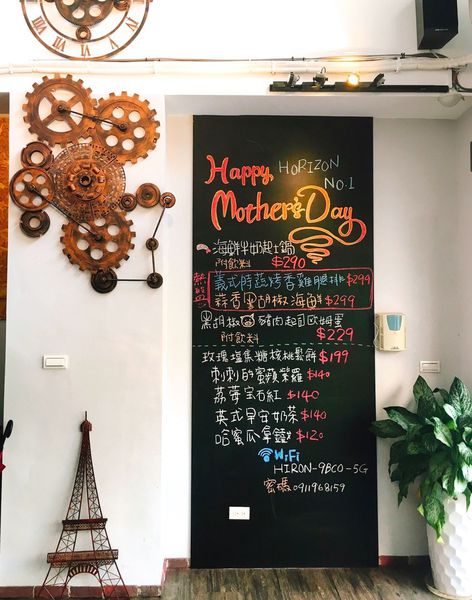 Happy HORIZON
NO.1
Mother's Day
海鮮牛奶起士鍋
附飲料 $290
熱盤
義式時蔬烤香雞腿排 $299
蒜香黑胡椒海鮮 $299
黑胡椒豬肉起司歐姆蛋
附飲料 $229
玫瑰塩焦糖核桃鬆餅 $199
刺刺的蜜蘋紫羅 $140
荔莓宝石紅 $140
英式早安奶茶 $140
哈蜜瓜拿鐵 $120
WiFi
HIRON-9BC0-5G
密碼 0911968159